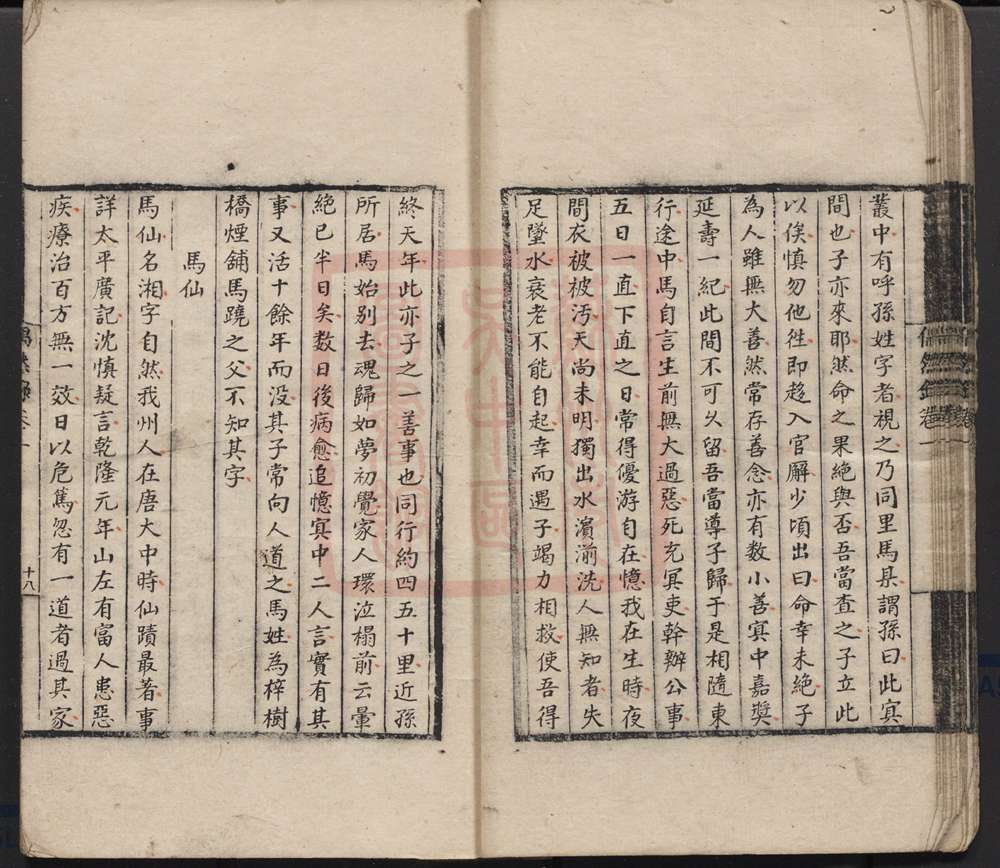 叢中有呼孫姓字者視之乃同里馬某謂孫曰此冥
間也子亦來耶然命之果絕與否吾當查之子立此
以俟慎勿他徃即趍入官廨少頃出曰命幸未絕子
為人雖無大善然常存善念亦有数小善冥中嘉奬
延壽一紀此間不可久留吾當導子歸于是相隨東
行途中馬自言生前無大過惡死充冥吏幹辦公事
五日一直下直之日常得優游自在憶我在生時夜
間衣被被汚天尚未明獨出水濱湔洗人無知者失
足墜水衰老不能自起幸而遇子竭力相救使吾得
終天年此亦子之一善事也同行約四五十里近孫
所居馬始别去魂歸如夢初覺家人環泣榻前云暈
絕已半日矣数日後病愈追憶冥中二人言實有其
事又活十餘年而没其子常向人道之馬姓為梓樹
橋煙舖馬蹺之父不知其字
馬仙
馬仙名湘字自然我州人在唐大中時仙蹟最著事
詳太平廣記沈慎疑言乾隆元年山左有富人患惡
疾療治百方無一效日以危篤忽有一道者過其家
十八